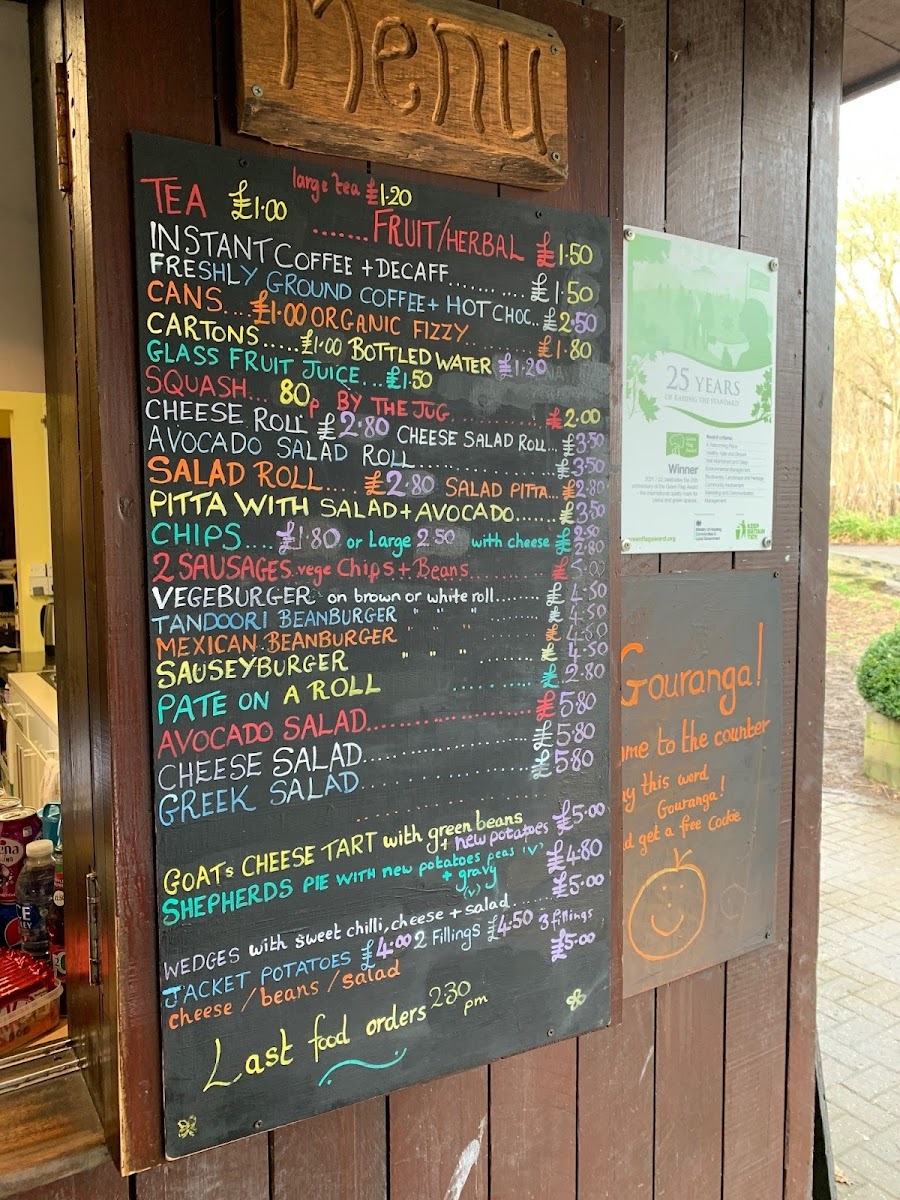 Menu
large tea £1.20
TEA £1.00
.......FRUIT/HERBAL £1.50
INSTANT COFFEE + DECAFF............£1.50
FRESHLY GROUND COFFEE + HOT CHOC..£2.50
CANS....£1.00 ORGANIC FIZZY..........£1.80
CARTONS.....£1.00 BOTTLED WATER £1.20
GLASS FRUIT JUICE...£1.50
SQUASH... 80p BY THE JUG............£2.00
CHEESE ROLL £2.80 CHEESE SALAD ROLL...£3.50
AVOCADO SALAD ROLL..................£3.50
SALAD ROLL.....£2.80 SALAD PITTA...£2.80
PITTA WITH SALAD + AVOCADO.......£3.50
CHIPS....£1.80 or Large 2.50 with cheese £2.50 £2.80
2 SAUSAGES vege Chips + Beans...........£5.00
VEGEBURGER on brown or white roll.......£4.50
TANDOORI BEANBURGER " " " £4.50
MEXICAN BEANBURGER " " " £4.50
SAUSEYBURGER " " " .......£4.50
PATE ON A ROLL ..........£2.80
AVOCADO SALAD...................£5.80
CHEESE SALAD...................£5.80
GREEK SALAD...................£5.80
GOATs CHEESE TART with green beans
+ new potatoes £5.00
SHEPHERDS PIE WITH new potatoes peas (v) £4.80
+ gravy
(v)
WEDGES with sweet chilli, cheese + salad.......£5.00
JACKET POTATOES £4.00 2 Fillings £4.50 3 fillings
£5.00
cheese / beans / salad
Last food orders 2.30
pm
25 YEARS
OF RAISING THE STANDARD
Green Flag Award
Winner
Award criteria:
A Welcoming Place
Healthy, Safe and Secure
Well Maintained and Clean
Environmental Management
Biodiversity, Landscape and Heritage
Community Involvement
Marketing and Communication
Management
greenflagaward.org
Ministry of Housing,
Communities &
Local Government
KEEP
BRITAIN
TIDY
Gouranga!
me to the counter
y this word
Gouranga!
d get a free Cookie